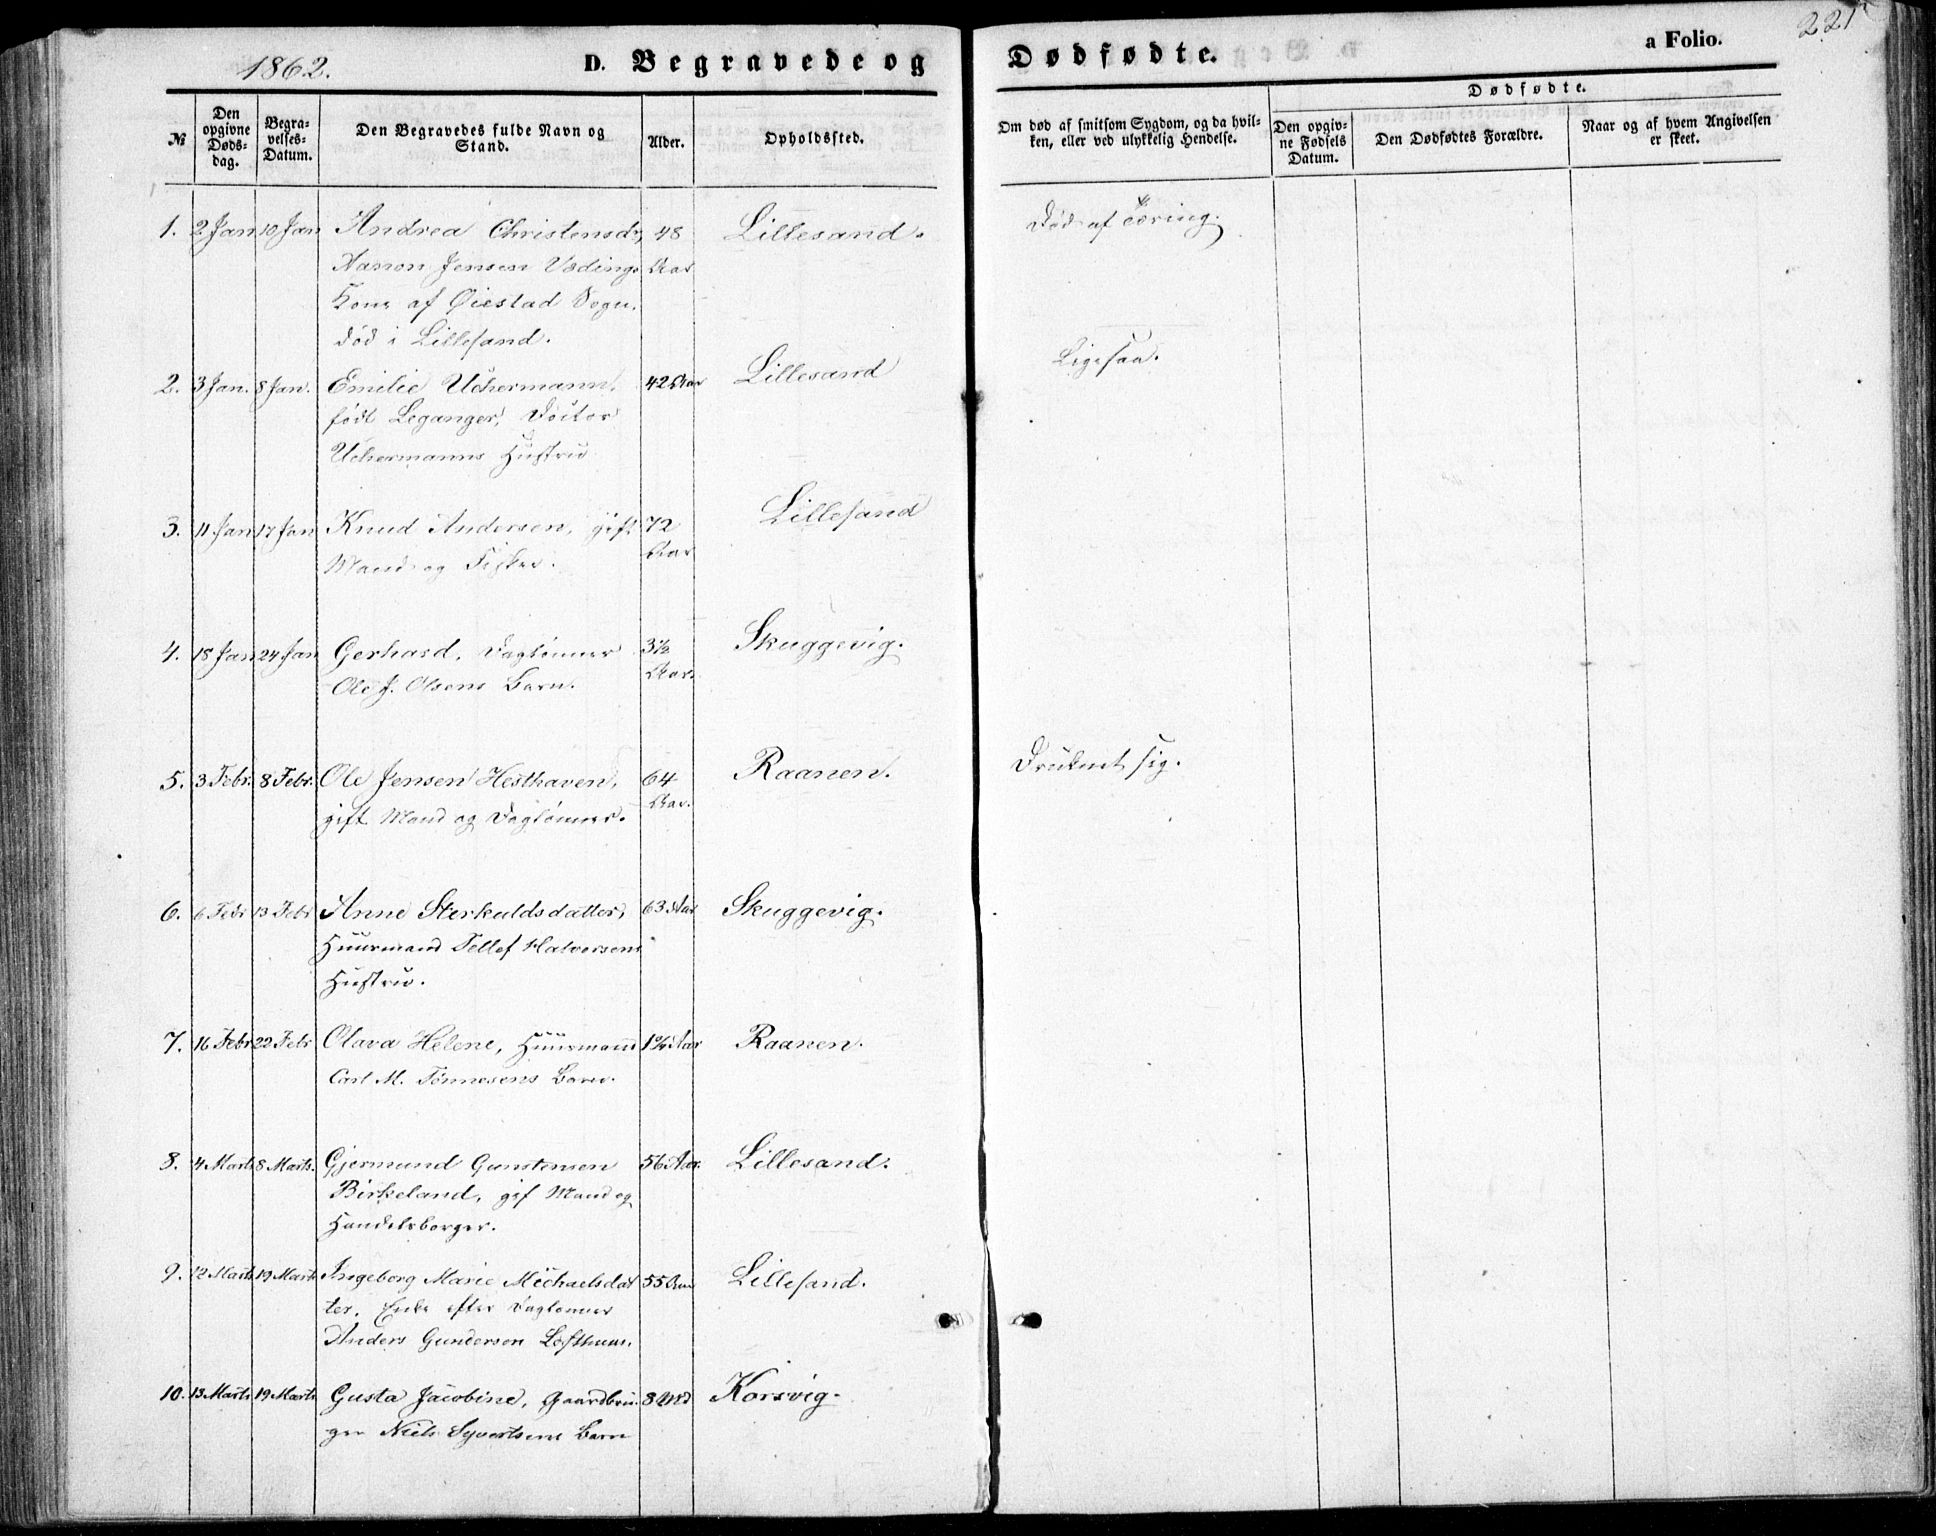 1862.
D. Begravede og Dødfødte.
a Folio.
221
№
Den opgivne Døds-dag.
Begra-velses-Datum.
Den Begravedes fulde Navn og Stand.
Alder.
Opholdssted.
Om død af smitsom Sygdom, og da hvil-ken, eller ved ulykkelig Hendelse.
Dødfødte.
Den opgiv-ne Fødsels Datum.
Den Dødfødtes Forældre.
Naar og af hvem Angivelsen er skeet.
1. 2 Jan 10 Jan Andrea Christensdr, 48 Lillesand. Død af Tæring.
Aanon Jensen Aar
Kone af Øiestad Sogn.
død i Lillesand.
2. 3 Jan. 8 Jan. Emilie Uchermann, 42 Aar Lillesand Ligesaa.
født Leganger, Doctor
Uchermanns Hustru
3. 11 Jan 17 Jan Knud Andersen, gift 72 Lillesand
Mand og Fisker. Aar
4. 18 Jan 24 Jan Gerhard, Daglønner 3½ Skuggevig.
Ole J. Olsens Barn. Aar.
5. 3 Febr. 8 Febr. Ole Jensen Hesthaven, 64 Raanen. Druknet sig.
gift Mand og Daglønner. Aar.
6. 6 Febr 13 Febr Anne Sterkuldsdatter, 63 Aar Skuggevig.
Huusmand Tellef Halvorsens
Hustru.
7. 16 Febr 22 Febr Olava Helene, Huusmand Aar Raanen.
Carl M. Tønnesens Barn.
8. 4 Marts 8 Marts. Gjermund Gunstensen 56 Aar. Lillesand.
Birkeland, gif Mand og
Handelsborger.
9. 12 Marts 19 Marts Ingeborg Marie Michaelsdat 55 Aar Lillesand.
ter, Enke efter Daglønner
Anders Gundersen Lofthuus.
10. 13 Marts 19 Marts Gusta Jacobine, Gaardbru- 8 Md Korsvig.
ger Niels Syvertsens Barn